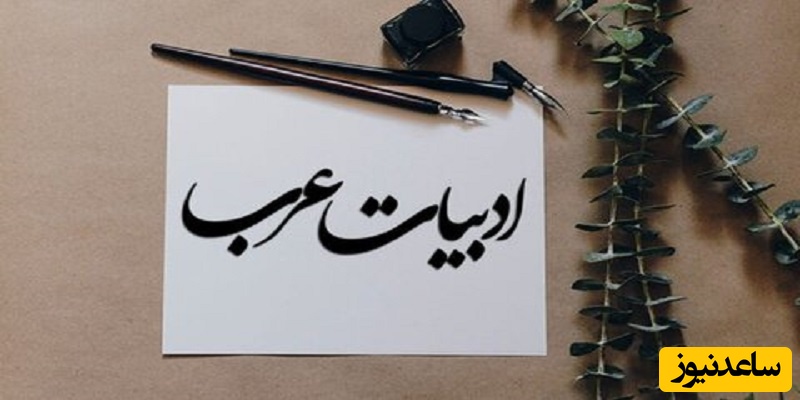 ادبیات عرب
ساعدنیوز